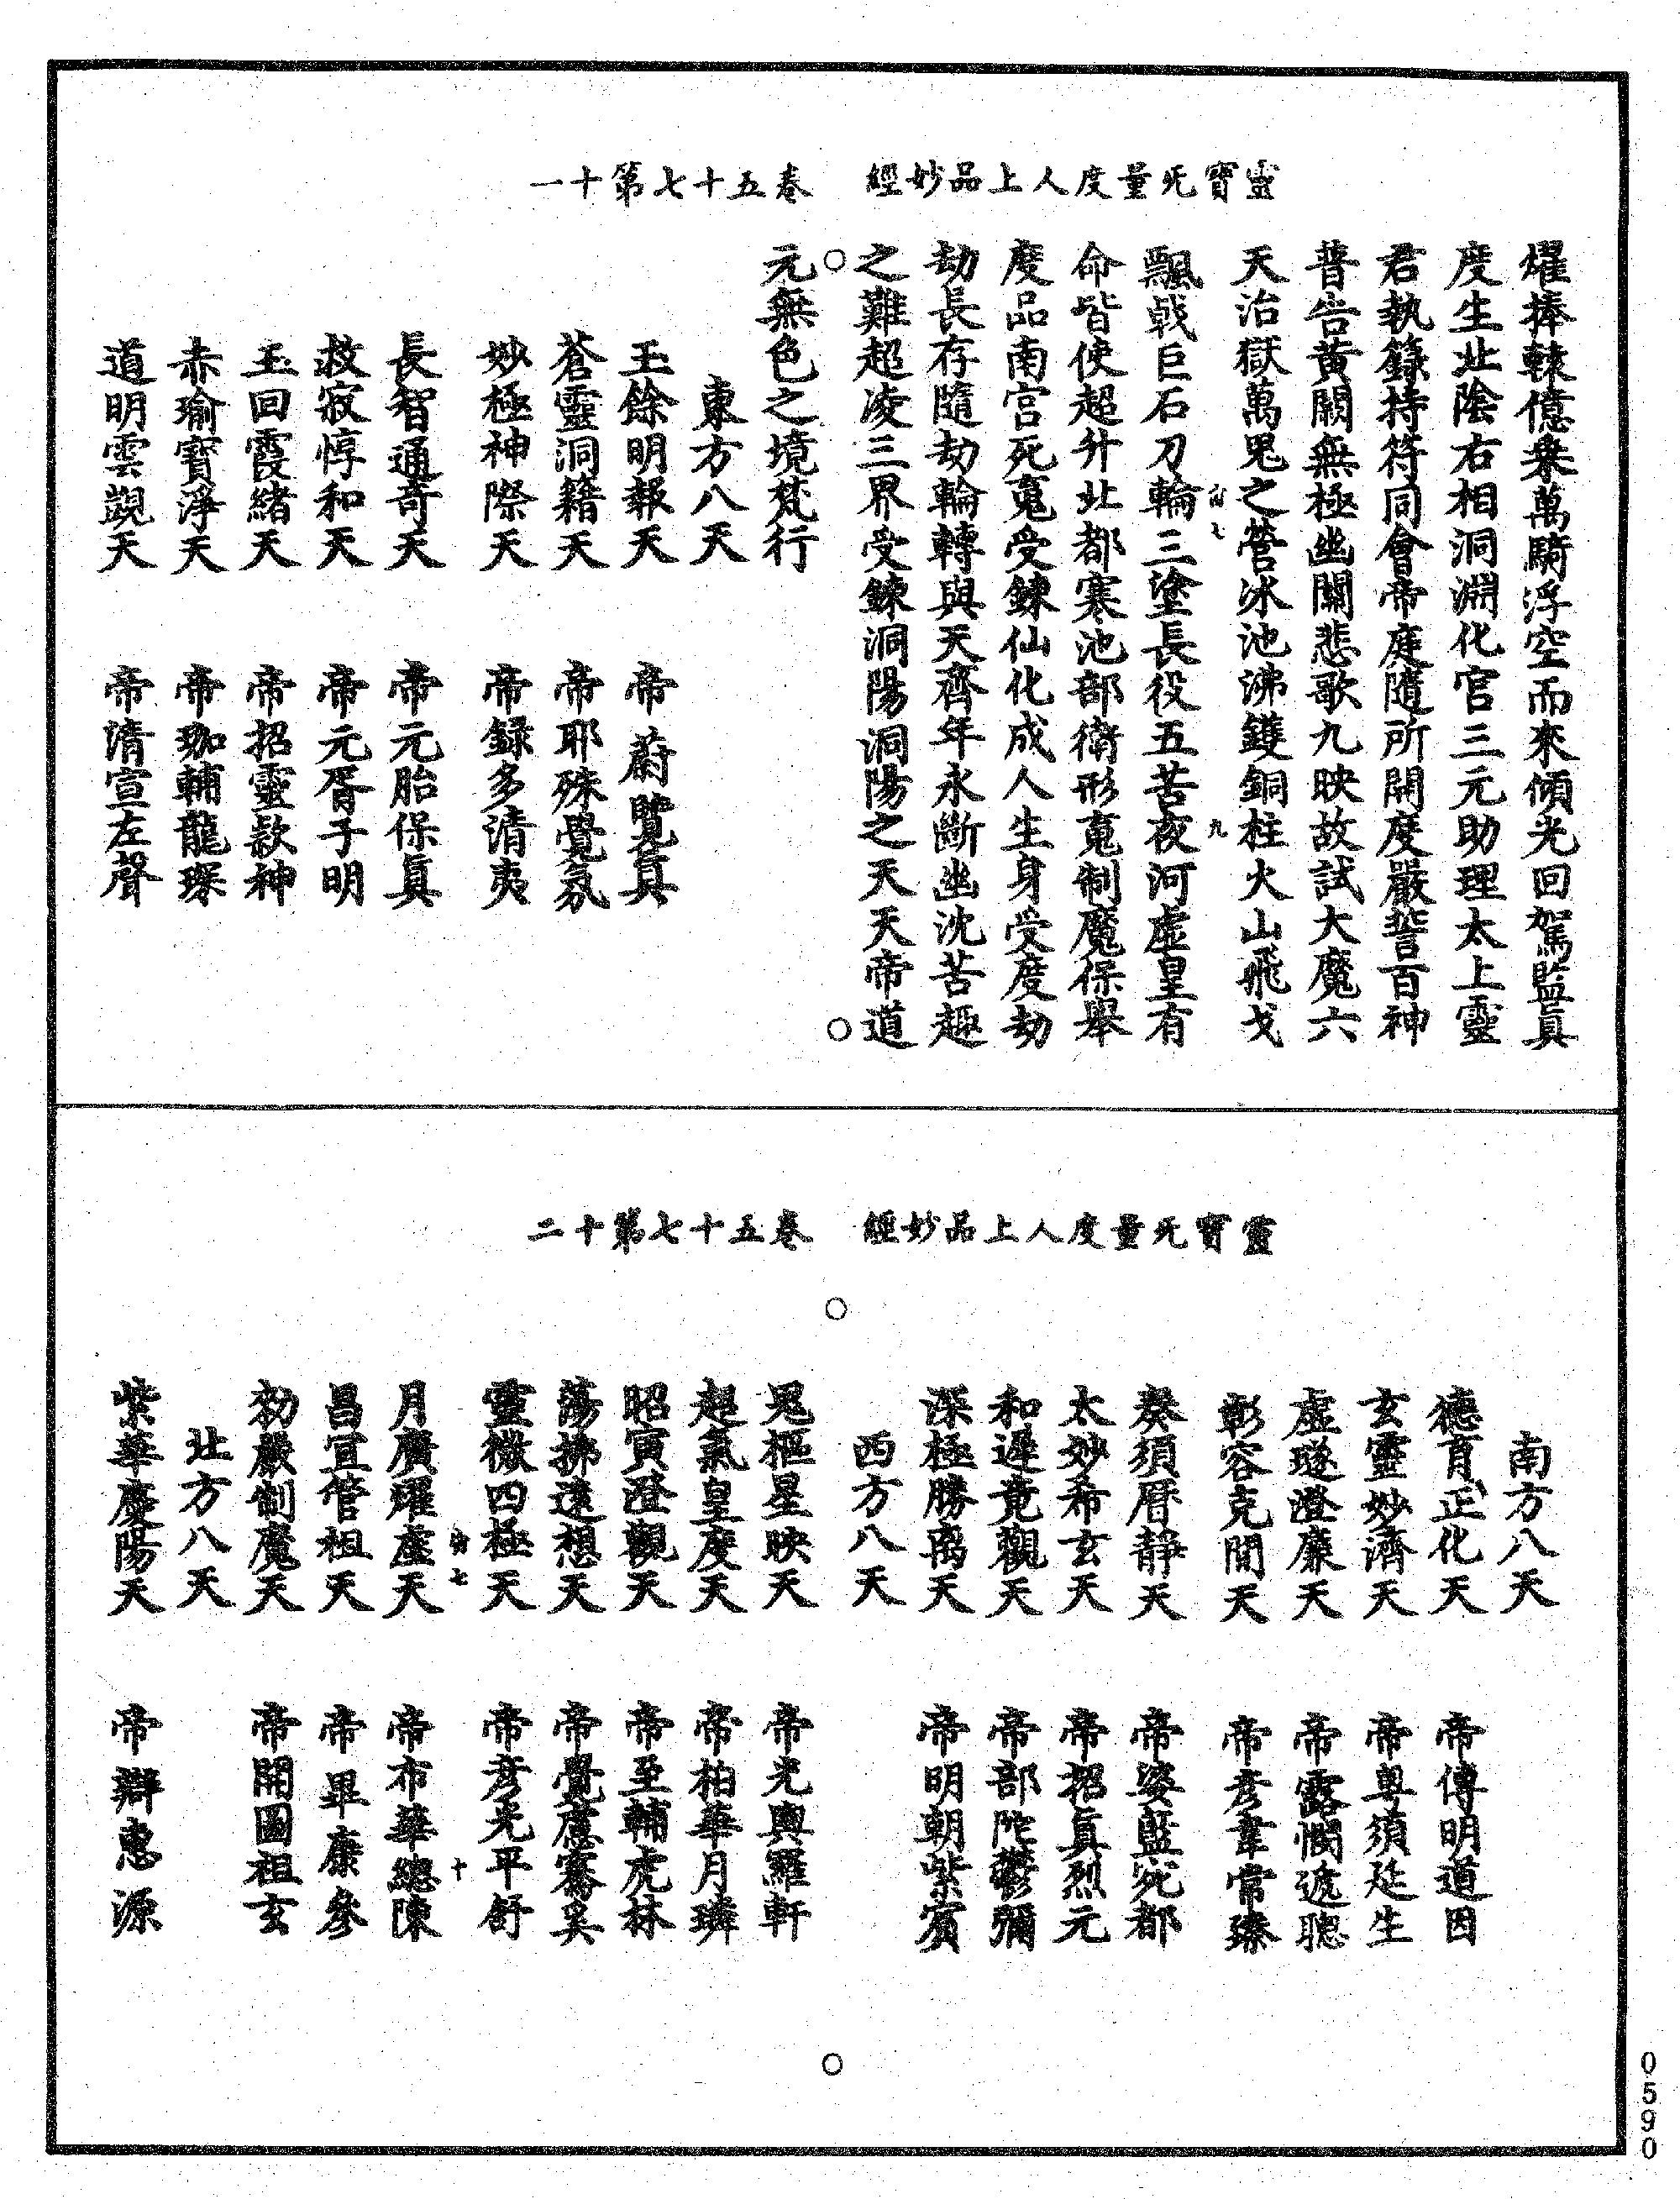 靈寳无量度人上品妙經　卷五十七第十一
燿捧輅億乗萬騎浮空而來傾光回駕監眞
度生北陰右相洞淵化官三元助理太上靈
君執籙持符同會帝庭隨所開度嚴誓百神
普告黄闕無極幽關悲歌九映故試大魔六
天治獄萬鬼之營冰池沸鑊銅柱火山飛戈
七
九
飄戟巨石刀輪三塗長役五苦夜河虛皇有
命皆使超升北都寒池部衛形䰟制魔保舉
度品南宫死䰟受鍊仙化成人生身受度劫
劫長存隨劫輪轉與天齊年永斷幽沈苦趣
之難超凌三界受鍊洞陽洞陽之天天帝道
元無色之境梵行
東方八天
玉餘明報天　帝蔚覽眞
蒼靈洞籍天　帝耶殊覺氛
妙極神際天　帝録多清夷
長智通奇天　帝元胎保眞
救寂惇和天　帝元胥子明
玉回霞緒天　帝招靈款神
赤瑜寳淨天　帝珈輔龍琛
道明雲覬天　帝清宣左聲
靈寳无量度人上品妙經　卷五十七第十二
南方八天
德育正化天　帝傳明道因
玄靈妙濟天　帝粤須延生
虛璲澄廉天　帝露憫遮聰
彰容克閒天　帝彥韋常臻
葵須曆静天　帝姿監宛都
太妙希玄天　帝招眞烈元
和遲竟觀天　帝部陀鬱彌
深極勝离天　帝明朝紫賓
西方八天
鬼樞星映天　帝光輿羅軒
超氣皇度天　帝柏華月璘
昭寅澄觀天　帝至輔虎林
蕩拂遠想天　帝覺慮騫奚
靈微四極天　帝彥光平舒
七
十
月廣燿虛天　帝布華總陳
昌宜管祖天　帝畢康參
劾嚴制魔天　帝開圖祖玄
北方八天
紫華慶陽天　帝辯惠源
0590